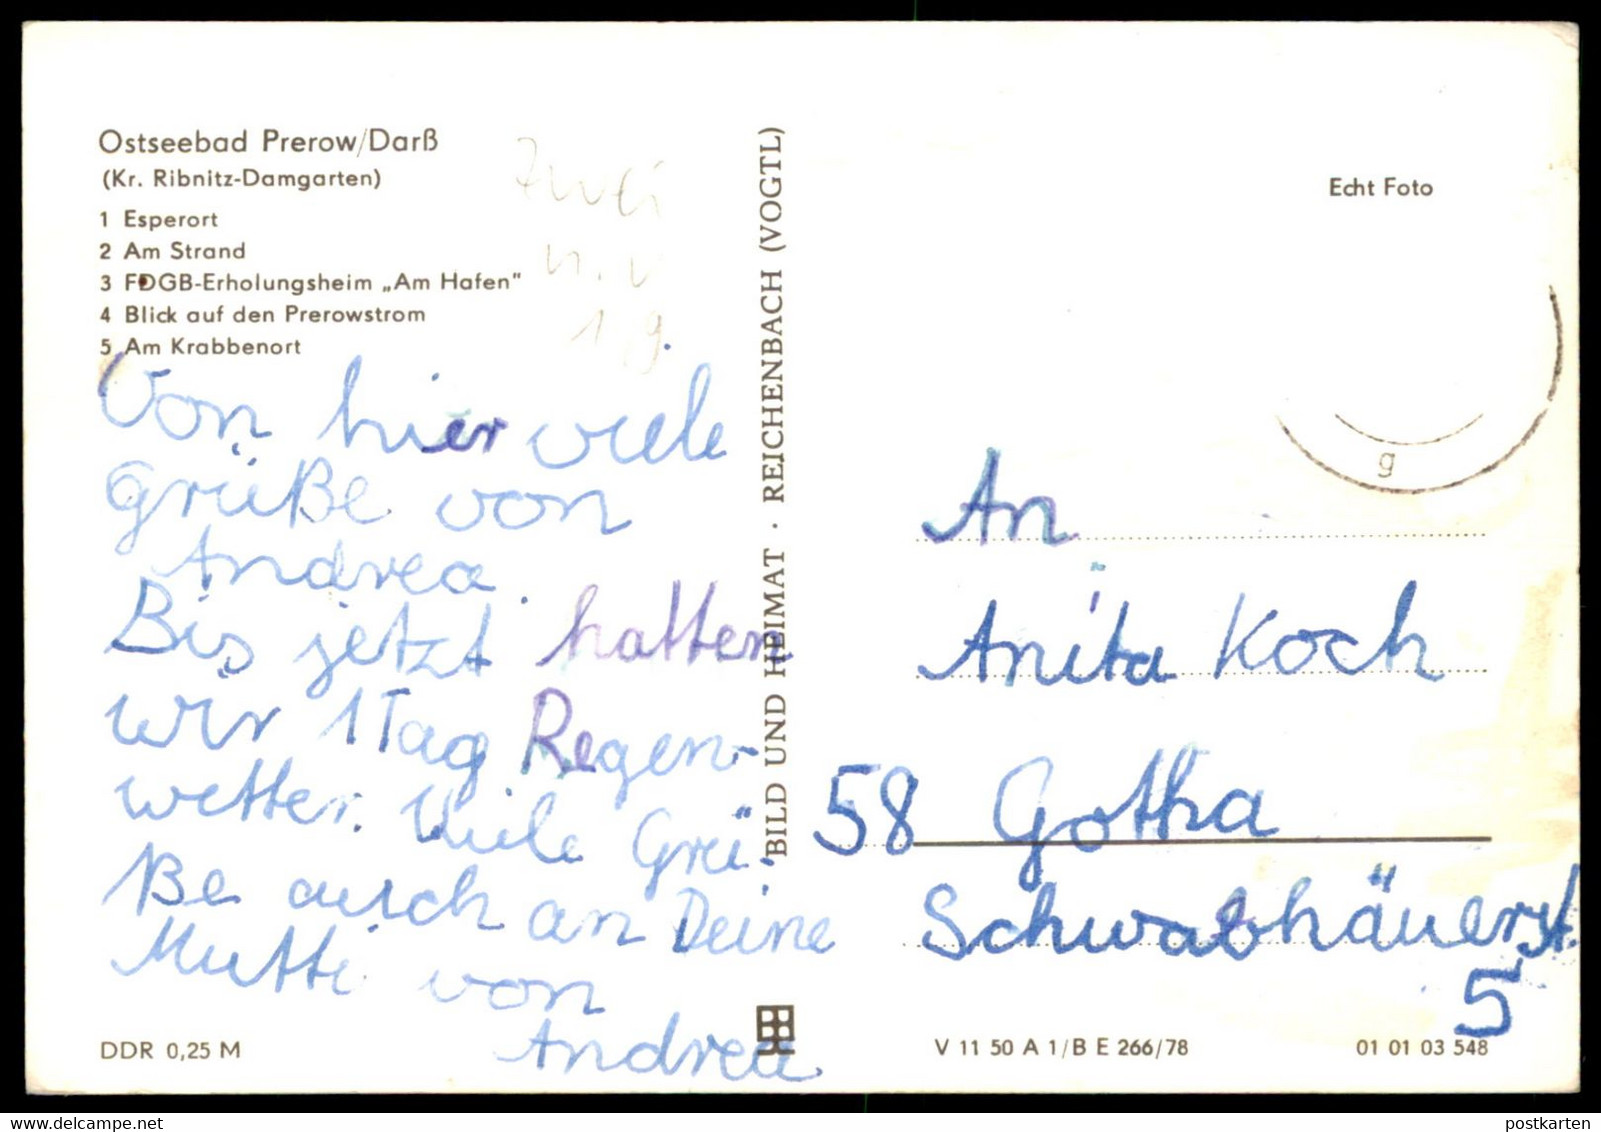 Ostseebad Prerow/Darß
(Kr. Ribnitz-Damgarten)
1 Esperort
2 Am Strand
3 FDGB-Erholungsheim „Am Hafen"
4 Blick auf den Prerowstrom
5 Am Krabbenort
Zwei
Von hier viele
Grüße von
Andrea.
Bis jetzt hatten
wir 1 Tag Regen-
wetter. Viele Grü-
ße auch an Deine
Mutti von
Andrea
DDR 0,25 M
BILD UND HEIMAT · REICHENBACH (VOGTL)
Echt Foto
g
An
Anita Koch
58 Gotha
Schwabhäuerst.
5
V 11 50 A 1/B E 266/78
01 01 03 548
postkarten